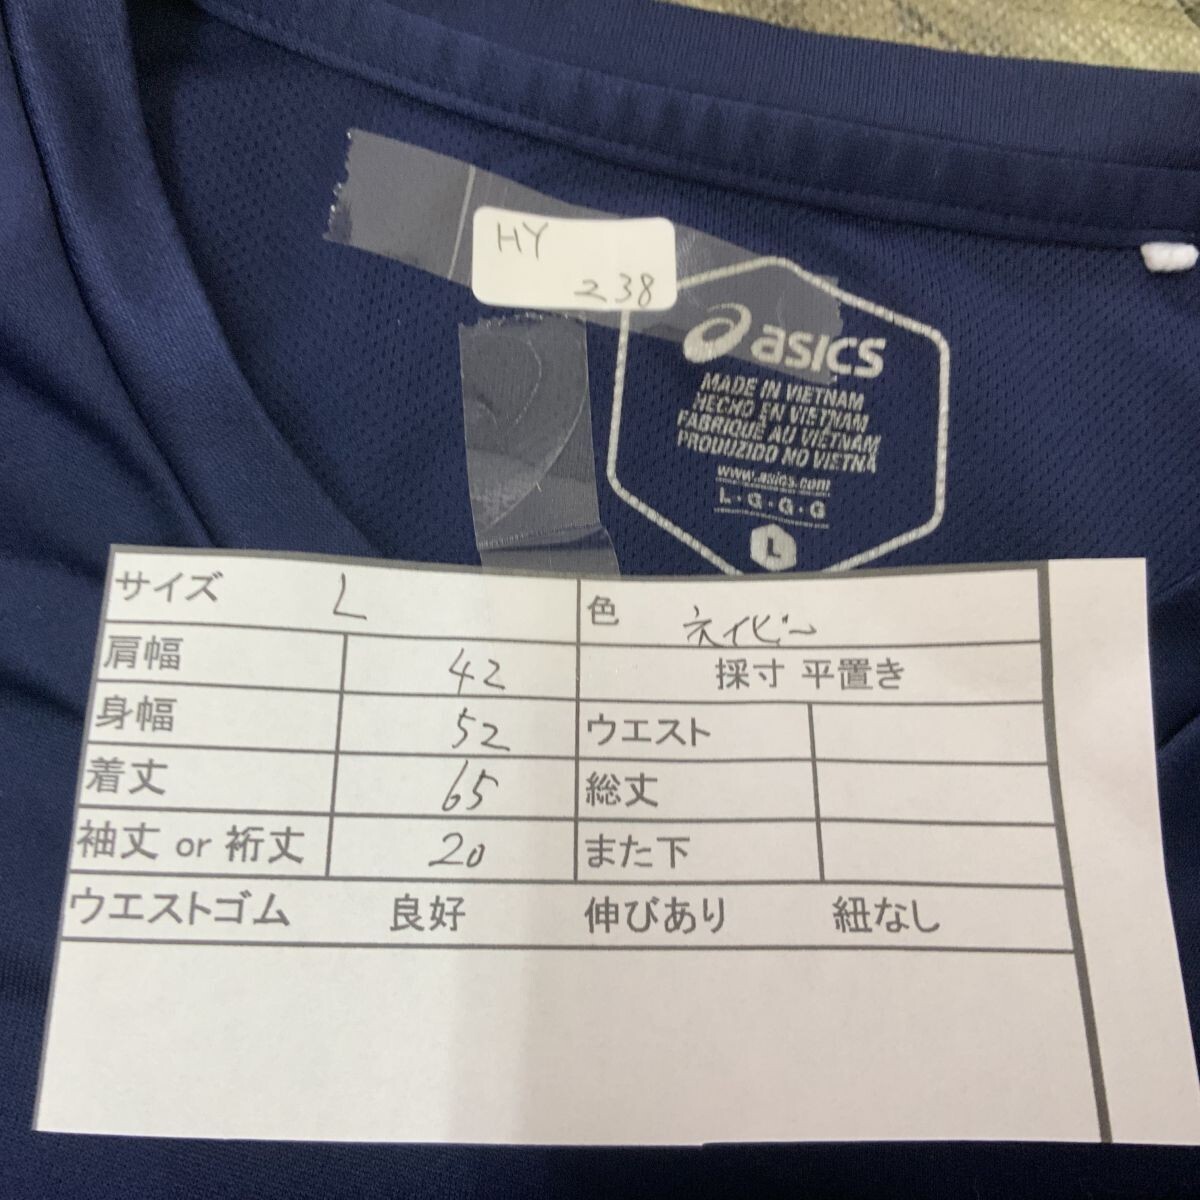 HY
238
asics
MADE IN VIETNAM
HECHO EN VIETNAM
FABRIQUÉ AU VIETNAM
PRODUZIDO NO VIETNÃ
www.asics.com
L・G・G・G
L
サイズ L 色 ネイビー
肩幅 42 採寸 平置き
身幅 52 ウエスト
着丈 65 総丈
袖丈 or 裄丈 20 また下
ウエストゴム 良好 伸びあり 紐なし